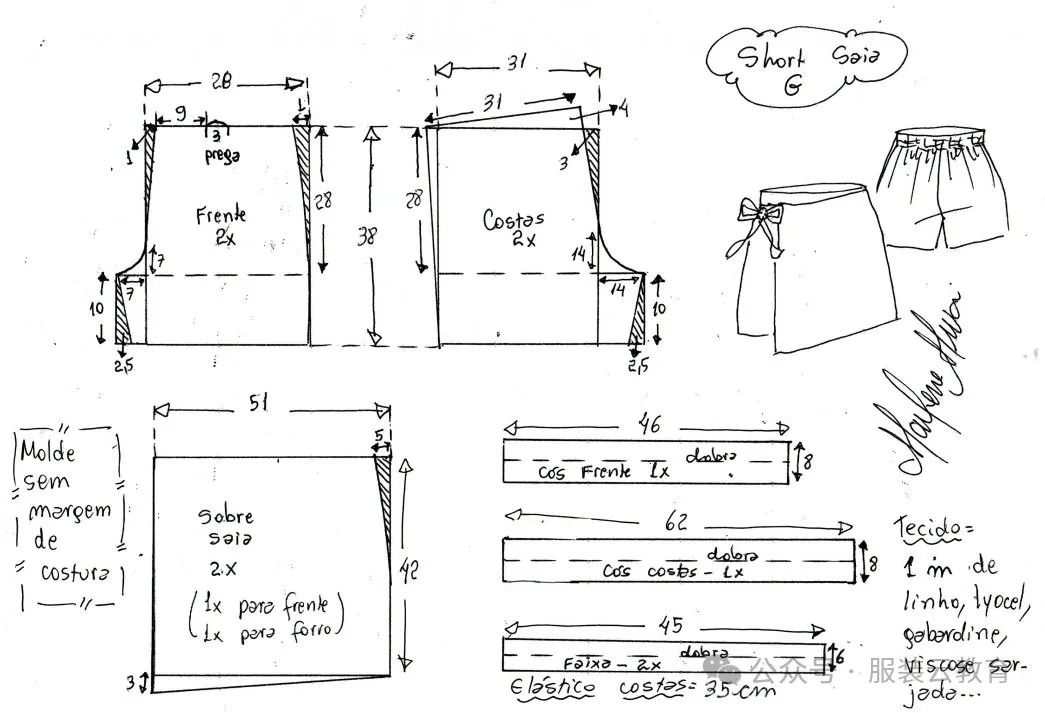 Short Saia
G
28
9
1
1
3
prega
28
Frente
2x
7
7
10
2,5
38
31
31
4
3
28
Costas
2x
14
14
10
2,5
Molde
sem
margem
de
costura
51
5
Sobre
saia
2x
(1x para frente
1x para forro)
42
3
46
dobra
Cós Frente 1x
8
62
dobra
Cós costas - 1x
8
45
dobra
Faixa - 2x
6
Elástico costas = 35 cm
Tecido=
1 m de
linho, lyocel,
gabardine,
viscose sar-
jada...
公众号·服装云教育